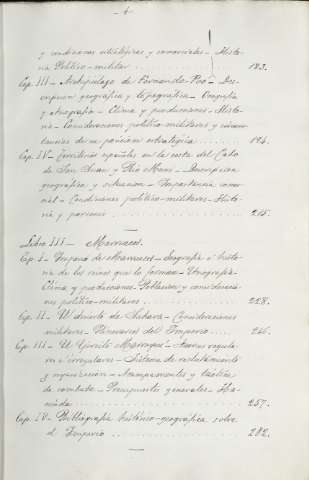 - 4 -
y condiciones estratégicas y comerciales - Histo-
ria Político-militar . . . . 183.
Cap. III - Archipiélago de Fernando Póo - Des-
cripción geográfica y topográfica - Orografía
y etnografía - Clima y producciones - Histo-
ria - Consideraciones político-militares y circuns-
tancias de su posición estratégica . . . . 194.
Cap. IV - Territorios españoles en la costa del Cabo
de San Juan y Río Muni - Descripción
geográfica y situación - Importancia comer-
cial - Condiciones político-militares - Histo-
ria y porvenir . . . . 215.
Libro III - Marruecos.
Cap. I - Imperio de Marruecos - Geografía e histo-
ria de los reinos que lo forman - Etnografía -
Clima y producciones - Población y consideracio-
nes político-militares . . . . 228.
Cap. II - El desierto de Sahara - Consideraciones
militares - Itinerarios del Imperio . . . . 246.
Cap. III - El Ejército Marroquí - Fuerzas regula-
res e irregulares - Sistema de reclutamiento
y organización - Acampamentos y táctica
de combate - Presupuestos generales - Ha-
cienda . . . . 257.
Cap. IV - Bibliografía histórico-geográfica sobre
el Imperio . . . . 282.